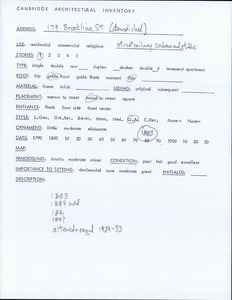 CAMBRIDGE ARCHITECTURAL INVENTORY
ADDRESS: 179 Brookline St. (demolished)
USE: residential commercial religious street railway carbarn and stable
STORIES: 1 2 3 4 5
TYPE: single double row duplex double d tenement apartment
ROOF: hip gable flank gable mansard flat
MATERIAL: frame brick SIDING: original subsequent
PLACEMENT: narrow to street broad to street square
ENTRANCE: flank front side front center
STYLE: L.Geo. Fed. Ital. Mans. Med. Q.A. C.Rev. None
ORNAMENT: little moderate elaborate 1883
DATE: 1790 1800 10 20 30 40 50 60 70 80 90 1900 10 20 30
MAP:
REMODELING: drastic moderate minor CONDITION: poor fair good excellent
IMPORTANCE TO SETTING: detrimental none moderate great INITIALED:
DESCRIPTION:
1883
1889 add
189
1897
altered + razed 1929-33